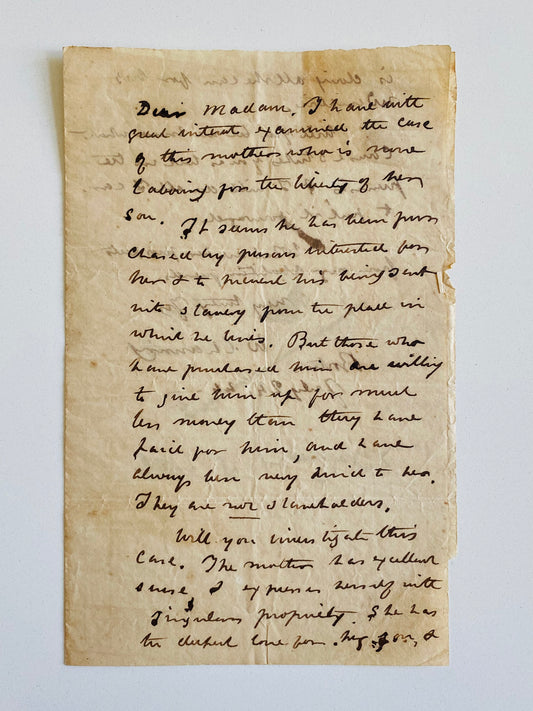 Dear Madam, I have with
great interest examined the case
of this mother who is now
laboring for the liberty of her
son. It seems he has been pur
chased by persons interested for
her & to prevent his being sent
into slavery from the place in
which he lives. But those who
have purchased him are willing
to give him up for much
less money than they have
paid for him, and have
always been very kind to her.
They are not slaveholders.
Will you investigate this
case. The mother has excellent
sense & expresses herself with
singular propriety. She has
the deepest love for her son, &